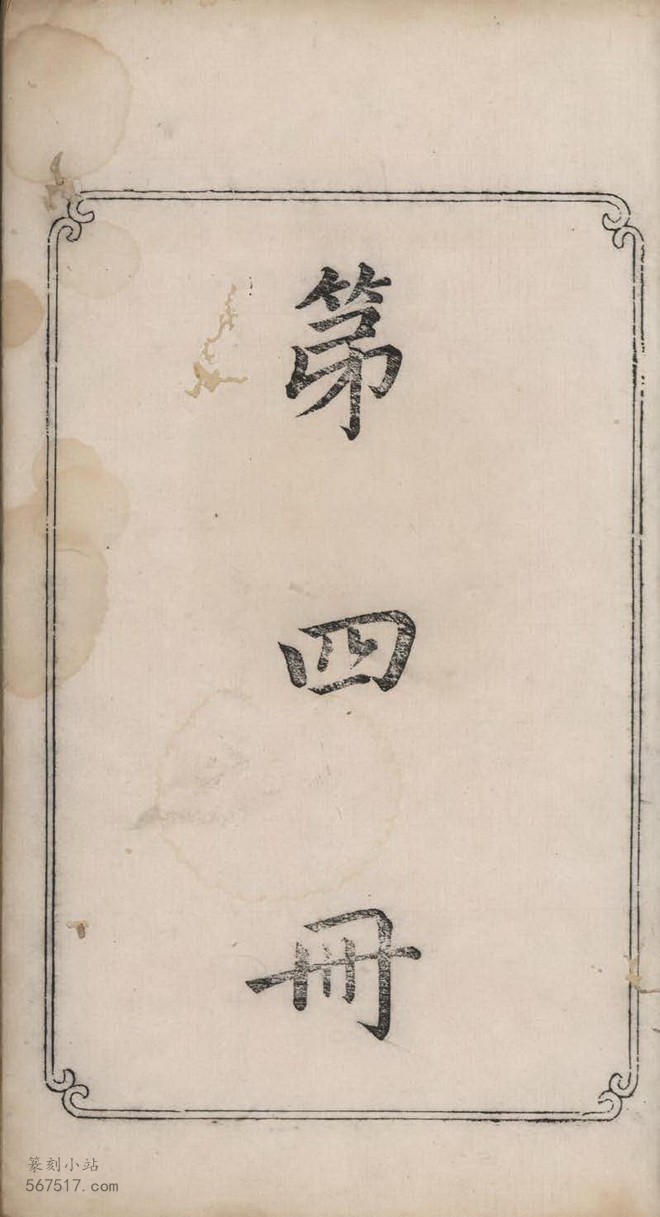 第四冊
篆刻小站
567517.com